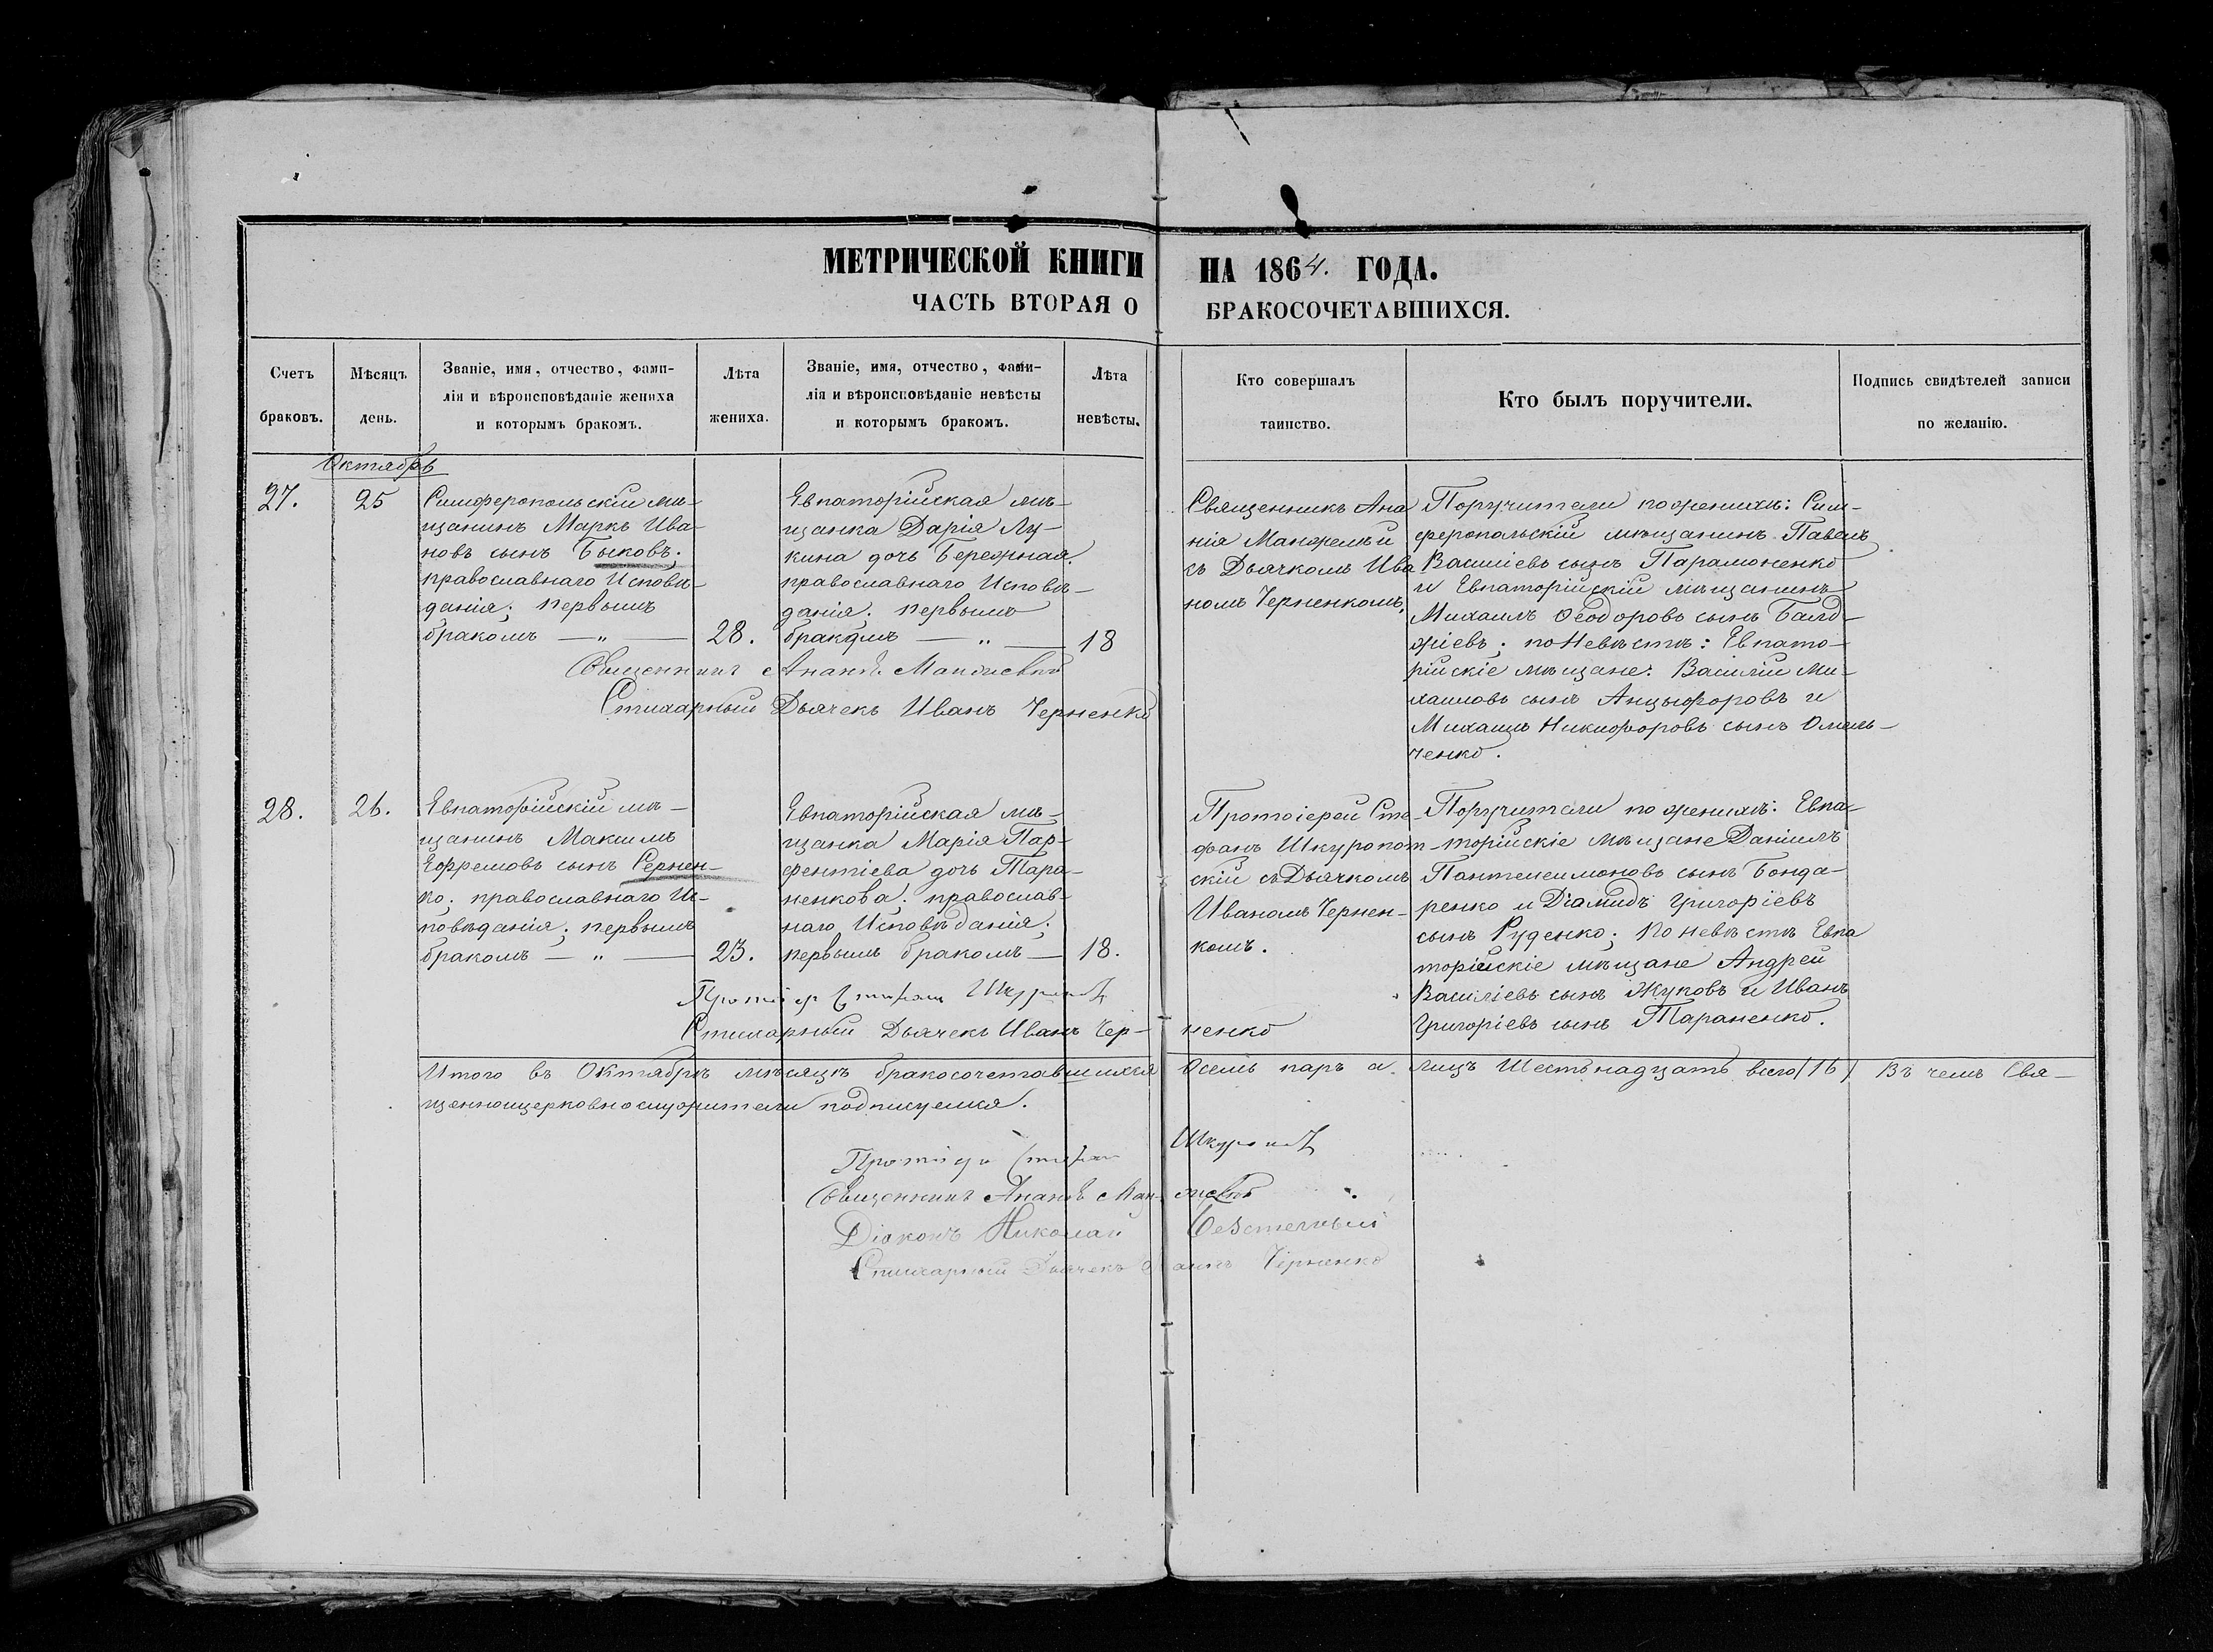 МЕТРИЧЕСКОЙ КНИГИ НА 1864. ГОДА.
ЧАСТЬ ВТОРАЯ О БРАКОСОЧЕТАВШИХСЯ.
Счетъ
браковъ.
Мѣсяцъ
день.
Званіе, имя, отчество, фами-
лія и вѣроисповѣданіе жениха
и которымъ бракомъ.
Лѣта
жениха.
Званіе, имя, отчество, фами-
лія и вѣроисповѣданіе невѣсты
и которымъ бракомъ.
Лѣта
невѣсты.
Кто совершалъ
таинство.
Кто былъ поручители.
Подпись свидѣтелей записи
по желанію.
Октябрь
27.
25
Симферопольскій мѣ-
щанинъ Маркъ Ива-
новъ сынъ Быковъ.
православнаго Исповѣ-
данія; первымъ
бракомъ — „ —
28.
Евпаторійская мѣ-
щанка Дарія Лу-
кина дочь Бережная.
православнаго Исповѣ-
данія; первымъ
бракомъ — „ —
18
Священникъ Ана
нія
съ Дьячкомъ Ива
номъ Черненкомъ.
Поручители по женихѣ: Сим-
феропольскій мѣщанинъ Павелъ
Василіевъ сынъ Парамоненко
и Евпаторійскій мѣщанинъ
Михаилъ Ѳеодоровъ сынъ
по Невѣстѣ: Евпато-
рійскіе мѣщане: Василій Ми-
хаиловъ сынъ Анцыфоровъ и
Михаилъ Никифоровъ сынъ Омель-
ченко.
Священникъ
Стихарный Дьячекъ Иванъ Черненко
28.
26.
Евпаторійскій мѣ-
щанинъ Максимъ
Ефремовъ сынъ Сернен-
ко; православнаго Ис-
повѣданія; первымъ
бракомъ — „ —
23.
Евпаторійская мѣ-
щанка Марія Пар-
фентіева дочь Тара-
ненкова; православ-
наго Исповѣданія;
первымъ бракомъ —
18.
Протоіерей Сте-
фанъ Шкуропат-
скій съ Дьячкомъ
Иваномъ Чернен-
комъ.
Поручители по женихѣ: Евпа-
торійскіе мѣщане Даніилъ
Пантелеимоновъ сынъ Бонда-
ренко и Діамидъ Григоріевъ
сынъ Руденко; По невѣстѣ Евпа
торійскіе мѣщане Андрей
Василіевъ сынъ Жуковъ и Иванъ
Григоріевъ сынъ Тараненко.
Стихарный Дьячекъ Иванъ Чер- ненко
Итого въ Октябрѣ мѣсяцѣ бракосочетавшихся осемь паръ а лицъ Шестьнадцать всего (16) Въ чемъ Свя-
щенноцерковнослужители подписуемся.
Священникъ
Діаконъ Николай
Стихарный Дьячекъ Иванъ Черненко